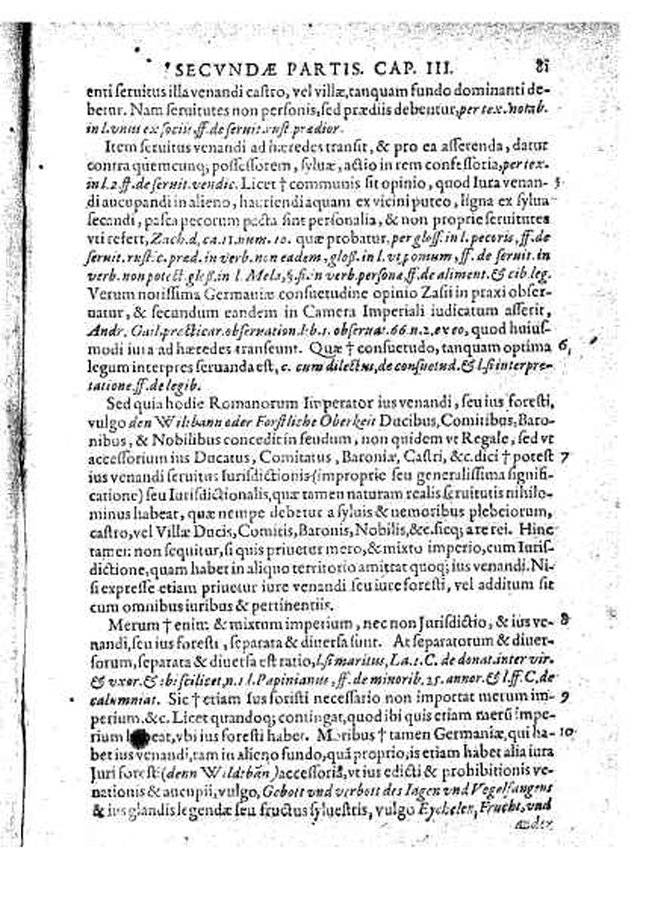 SECVNDÆ PARTIS. CAP. III. 81
enti ſeruitus illa venandi caſtro, vel villæ, tanquam fundo dominanti de-
betur. Nam ſeruitutes non perſonis, ſed prædiis debentur, per tex. notab.
in l. vnus ex ſociis, ff. de ſeruit. ruſt. prædior.
Item ſeruitus venandi ad hæredes tranſit, & pro ea aſſerenda, datur
contra quemcunq; poſſeſſorem, ſyluæ, actio in rem confeſſoria, per tex.
in l. 2. ff. de ſeruit. vendic. Licet † communis ſit opinio, quod Iura venan- 5
di aucupandi in alieno, hauriendi aquam ex vicini puteo, ligna ex ſylua
ſecandi, paſca pecorum pacta ſint perſonalia, & non proprie ſeruitutes
vti refert, Zach. d. ca. 11. num. 10. quæ probatur, per gloſſ. in l. pecoris, ff. de
ſeruit. ruſt. c. præd. in verb. non eadem, gloſſ. in l. vt pomum, ff. de ſeruit. in
verb. non poteſt. gloſſ. in l. Mela, §. fi. in verb. perſona, ff. de aliment. & cib. leg.
Verum notiſſima Germaniæ conſuetudine opinio Zaſii in praxi obſer-
uatur, & ſecundum eandem in Camera Imperiali iudicatum aſſerit,
Andr. Gail. practicar. obſeruation. lib. 1. obſeruat. 66. n. 2. ex eo, quod huiuſ-
modi iura ad hæredes tranſeunt. Quæ † conſuetudo, tanquam optima 6
legum interpres ſeruanda eſt, c. cum dilectus, de conſuetud. & l. ſi interpre-
tatione. ff. de legib.
Sed quia hodie Romanorum Imperator ius venandi, ſeu ius foreſti,
vulgo den Wildbann oder Forſtliche Oberkeit Ducibus, Comitibus, Baro-
nibus, & Nobilibus concedit in feudum, non quidem vt Regale, ſed vt
acceſſorium ius Ducatus, Comitatus, Baroniæ, Caſtri, &c. dici † poteſt 7
ius venandi ſeruitus Iurisdictionis (improprie ſeu generaliſſima ſignifi-
catione) ſeu Iurisdictionalis, quæ tamen naturam realis ſeruitutis nihilo-
minus habeat, quæ nempe debetur a ſyluis & nemoribus plebeiorum,
caſtro, vel Villæ Ducis, Comitis, Baronis, Nobilis, &c. ſicq; a re rei. Hinc
tamen non ſequitur, ſi quis priuetur mero, & mixto imperio, cum Iuriſ-
dictione, quam habet in aliquo territorio amittat quoq; ius venandi. Ni-
ſi expreſſe etiam priuetur iure venandi ſeu iure foreſti, vel additum ſit
cum omnibus iuribus & pertinentiis.
Merum † enim & mixtum imperium, nec non Jurisdictio, & ius ve- 8
nandi, ſeu ius foreſti, ſeparata & diuerſa ſunt. At ſeparatorum & diuer-
ſorum, ſeparata & diuerſa eſt ratio, l. ſi maritus, l. a. 1. C. de donat. inter vir.
& vxor. & ibi ſcilicet, n. 1 l. Papinianus, ff. de minorib. 25. annor. & l. ff. C. de
calumniat. Sic † etiam ius foriſti neceſſario non importat merum im- 9
perium. &c. Licet quandoq; contingat, quod ibi quis etiam merū impe-
rium habeat, vbi ius foreſti habet. Moribus † tamen Germaniæ, qui ha- 10
bet ius venandi, tam in alieno fundo, quā proprio, is etiam habet alia iura
Juri foreſti (denn Wildtbān) acceſſoriā, vt ius edicti & prohibitionis ve-
nationis & aucupii, vulgo, Gebott vnd verbott des Iagen vnd Vogelfangens
& ius glandis legendæ ſeu fructus ſylueſtris, vulgo Eychelen, Frucht, vnd
Ander